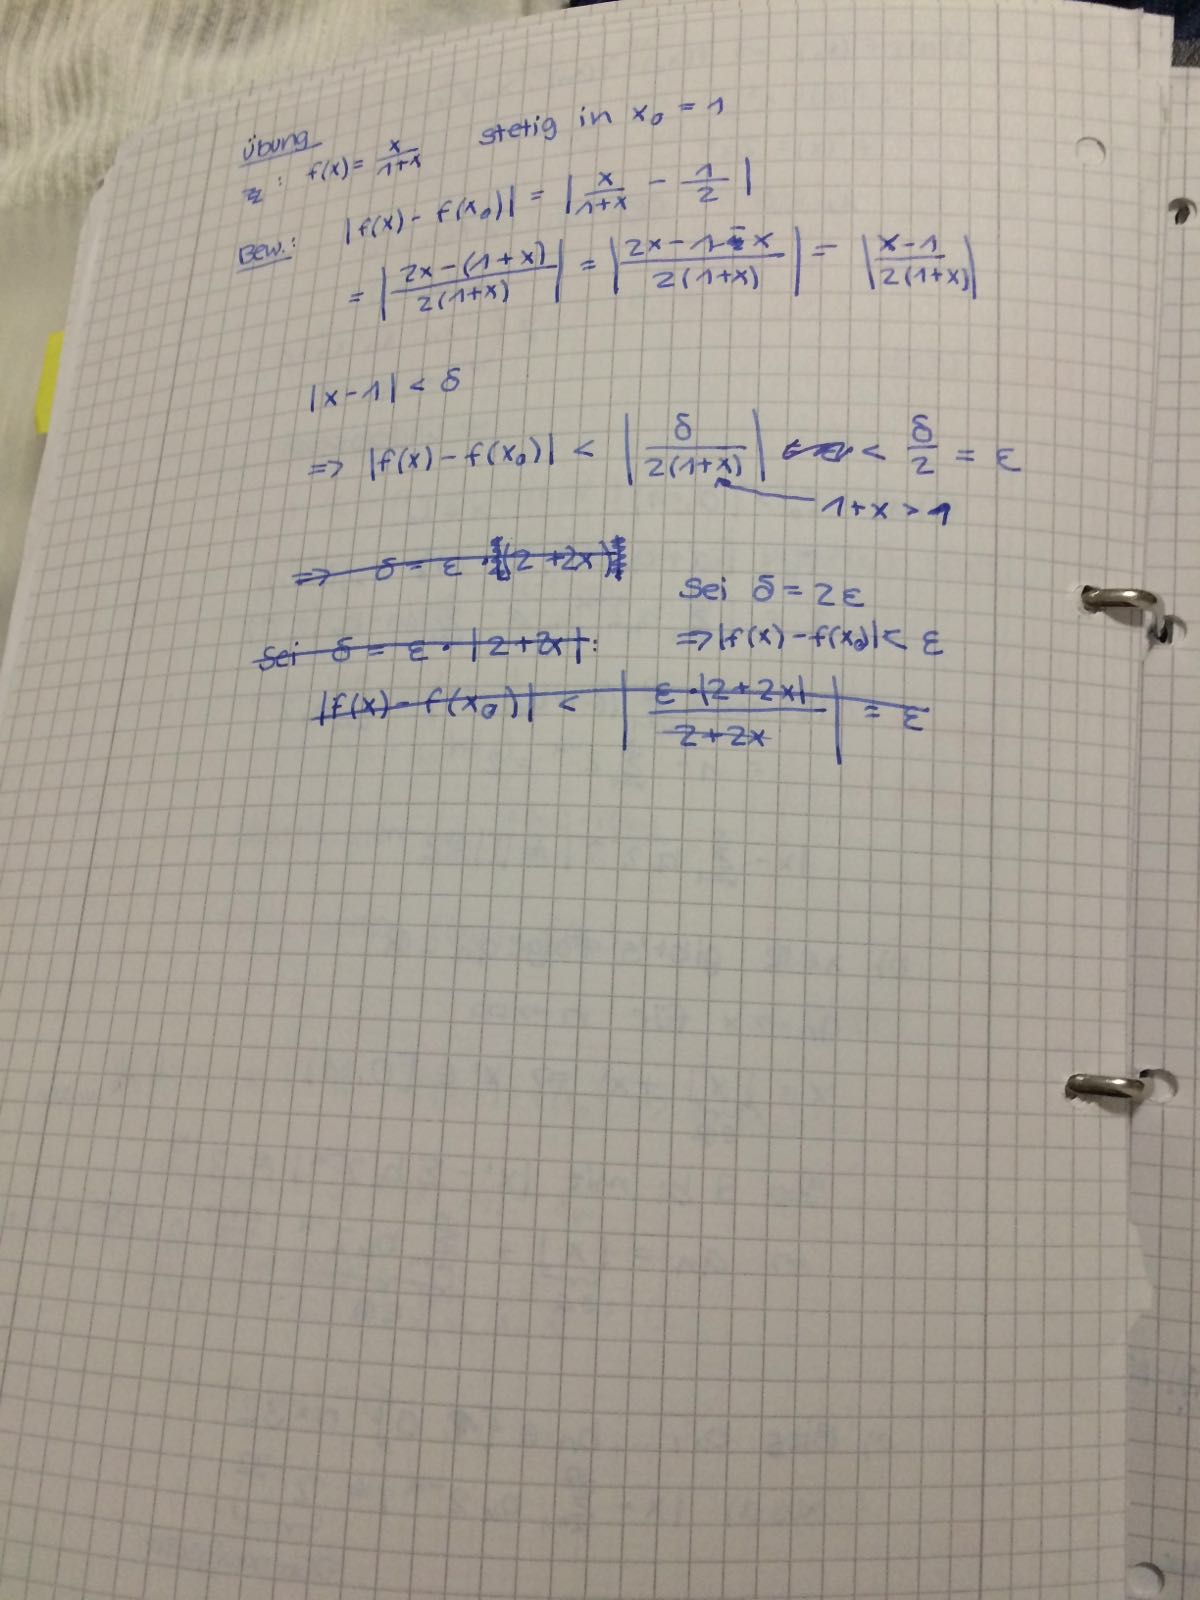 Übung
zz: f(x) = x/(1+x) stetig in x₀ = 1
Bew.: |f(x) - f(x₀)| = |x/(1+x) - 1/2|
= |(2x-(1+x))/(2(1+x))| = |(2x-1-x)/(2(1+x))| = |(x-1)/(2(1+x))|
|x-1| < δ
=> |f(x) - f(x₀)| < |δ/(2(1+x))| < δ/2 = ε
1+x > 1
=> δ = ε · (2+2x)
Sei δ = 2ε
Sei δ = ε · |2+2x|:
=> |f(x) - f(x₀)| < ε
|f(x) - f(x₀)| < |(ε·|2+2x|)/(2+2x)| = ε